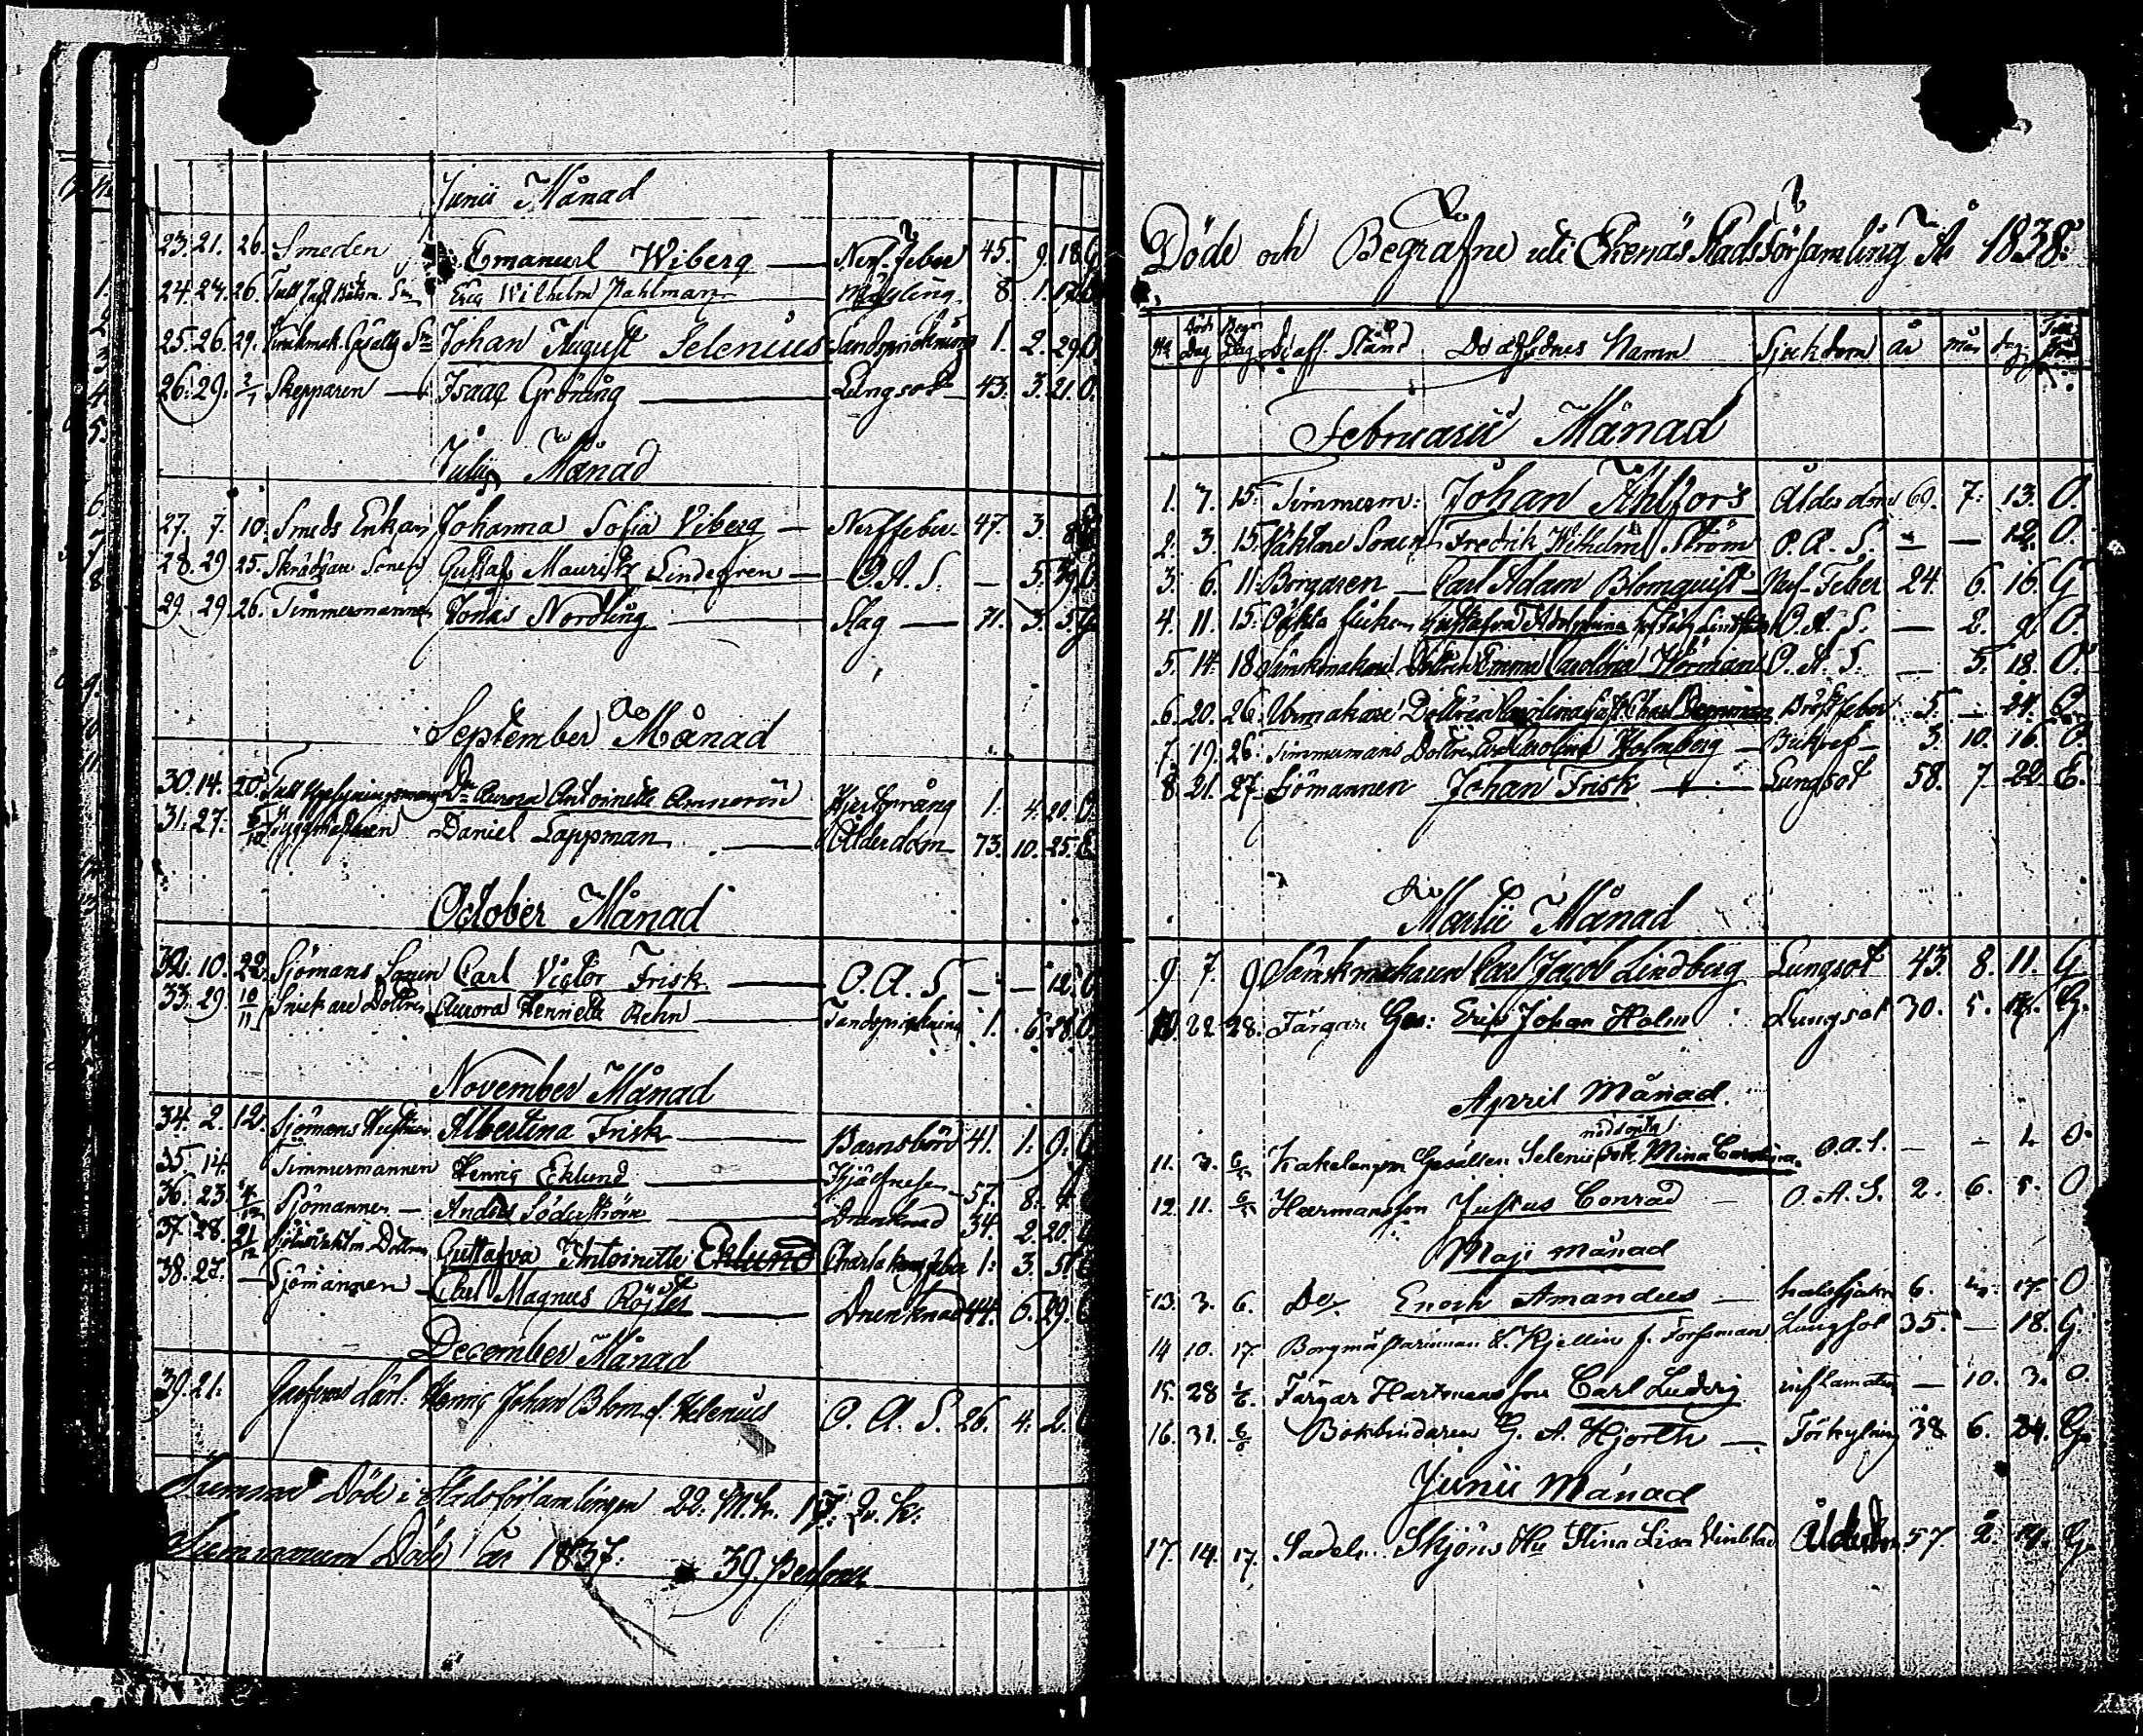 Junii Månad
23. 21. 26. Smeden Emanuel Wiberg Nerf. Feber 45. 9. 18 G
24. 24. 26. Eric Wilhelm Pahlman Mässling 8. 1. 17
25. 26. 29. Gesälls Sn Johan August Selenius Tandsprickning 1. 2. 29 O.
26. 29. 2/7 Skepparen Isaac Gröning Lungsot 43. 3. 21. O.
Julii Månad
27. 7. 10. Smeds Enkan Johanna Sofia Viberg Nerffeber 47. 3. 8
28. 29 25. Skräddare Sonen Gustaf Mauritz Lindegren O. A. S. — 5.
29. 29. 26. Timmermannen Jonas Nordling Slag 71. 3. 5
September Månad
30. 14. 20. Dr Aurora Antoinette 1. 4. 20. O.
31. 27. Daniel Lappman Ålderdom 73. 10. 25. E
October Månad
32. 10. 22. Sjömans Sonen Carl Victor Frisk O. A. S — — 12.
33. 29. 10/11 Snickare Dottren Aurora Henriette Rehn Tandsprickning 1. 6. 28.
November Månad
34. 2. 12. Sjömans Hustrun Albertina Frisk Barnsbörd 41. 1. 9.
35. 14. Timmermannen Henric Eklund 57. 8. 4
36. 23. 4/12 Sjömannen Anders Söderström Drunknad 34. 2. 20.
37. 28. 21/12 Dottren Gustafva Antoinette Eklund 1. 3. 5
38. 27. — Sjömannen Carl Magnus Drunknad 44. 6. 29.
December Månad
39. 21. Henric Johan Blom f. Helenius O. A. S. 26. 4. 2.
Summa Döde i Stadsförsamlingen 22. M.k. 17. Q. k.
Summarum Döde år 1837. 39. personer
Döde och Begrafne uti Ekenäs Stadsförsamling År 1838.
Död dag Begr dag Deras Stånd Dödes Namn Sjukdom år mån dag
Februarii Månad
1. 7. 15. Timmerm: Johan Ahlfors Ålderdom 69. 7. 13. O.
2. 3. 15. Väktare Sonen Fredrik Wilhelm Ström O. A. S. — — 12. O.
3. 6. 11. Borgaren Carl Adam Blomquist Nerf-Feber 24. 6. 16. G
4. 11. 15. Oäkta flickan Gustafva Adolphina O. A. S. — 2. 9. O.
5. 14. 18. Dottren Emma Carolina O. A. S. — 5. 18. O.
6. 20. 26. Urmakare Dottren Carolina Bröstfeber 5. — 24. O.
7. 19. 26. Timmermans Dottren Eva Carolina Holmberg Bukref 3. 10. 16. O
8. 21. 27. Sjömannen Johan Frisk Lungsot 58. 7. 22 E.
Martii Månad
9. 7. 9. Carl Jacob Lindberg Lungsot 43. 8. 11. G
10. 22. 28. Färgare Ges: Eric Johan Holm Lungsot 30. 5. G.
April Månad.
nöddöpta
11. 3. 6/5 Kakelugnm Gesällen Selenii Mina Carolina. O. A. S. — — 1. O.
12. 11. 6/5 Hermansson Justus Conrad O. A. S. 2. 6. 5. O
Maji månad
13. 3. 6. Do Enoch Amandus halssjukn 6. 17. O
14. 10. 17. Borgmästarinnan Kjellin f. Forssman Lungsot 35. — 18. G.
15. 28 1/6. Färgar Hartmans son Carl Ludvig inflamation — 10. 3. O.
16. 31. 6/6 Bokbindaren G. A. Hjorth Förkylning 38. 6. 24. G
Junii Månad
17. 14. 17. Sadelm. Skjöns Hu Stina Lisa Ålderdom 57. 2. G.